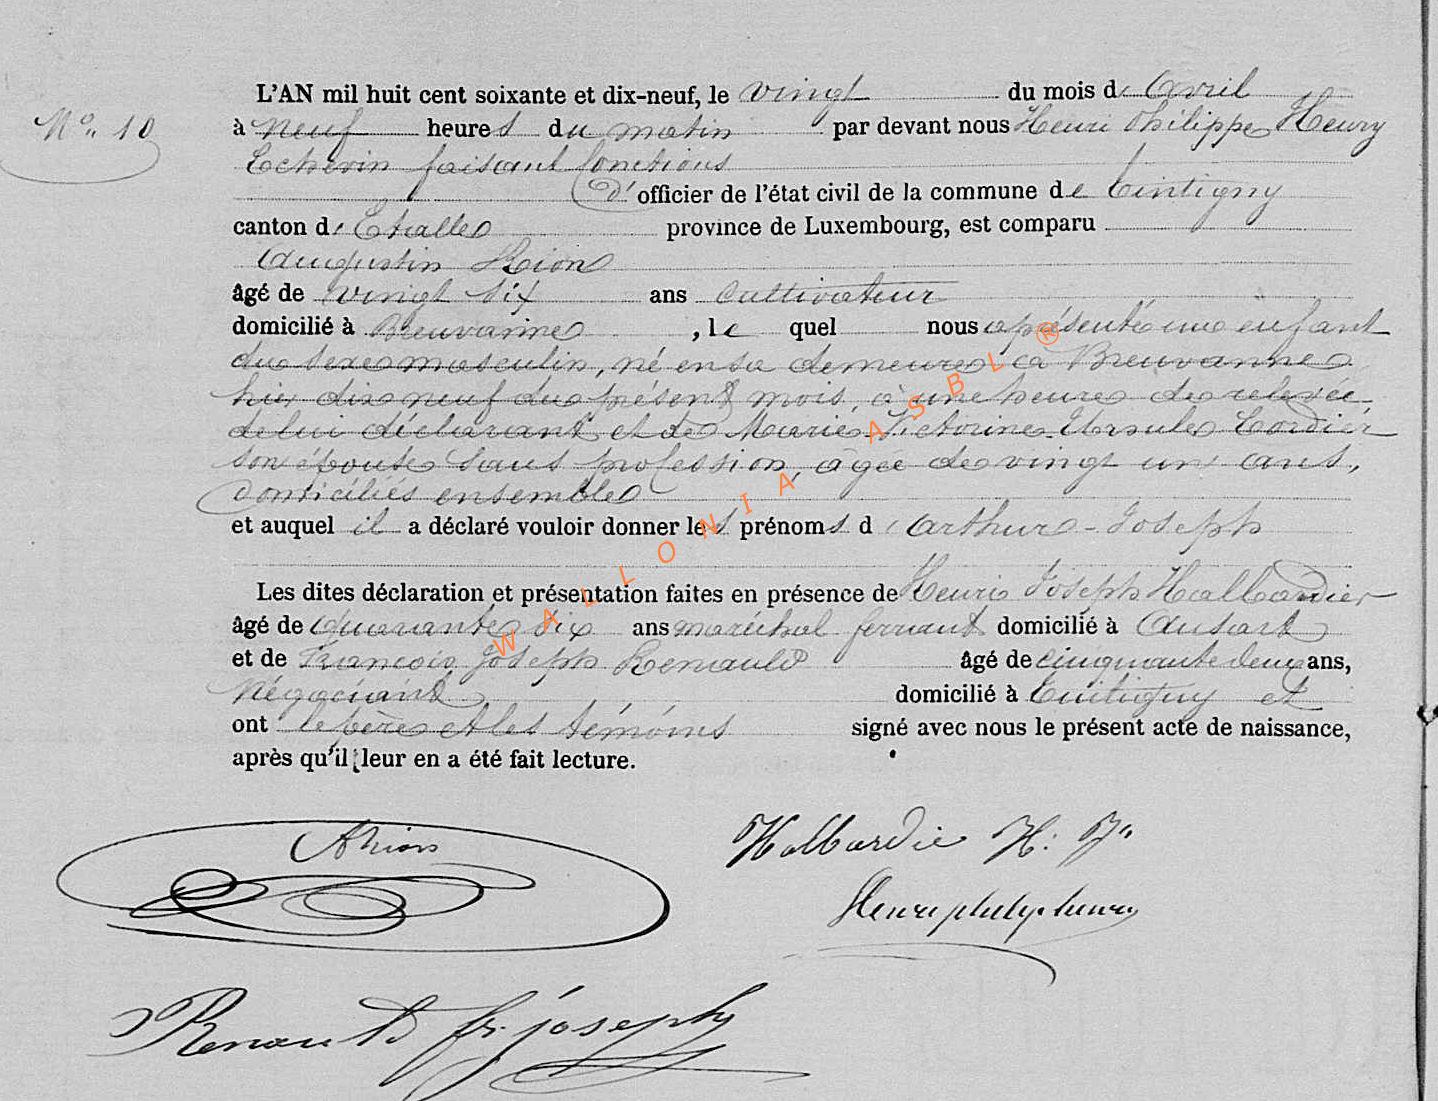 L'AN mil huit cent soixante et dix-neuf, le vingt du mois d' Avril
N°. 10 à neuf heures du matin par devant nous Henri Philippe Henry
Echevin faisant fonctions
d'officier de l'état civil de la commune de Tintigny
canton d' Etalle province de Luxembourg, est comparu
Augustin Rion
âgé de vingt six ans cultivateur
domicilié à Breuvanne, lequel nous a présenté un enfant
du sexe masculin, né en sa demeure à Breuvanne
hier dix neuf du présent mois, à une heure de relevée,
de lui déclarant et de Marie-Victorine-Ursule Cordier
son épouse sans profession, âgée de vingt un ans,
domiciliés ensemble
et auquel il a déclaré vouloir donner les prénoms d' Arthur-Joseph
Les dites déclaration et présentation faites en présence de Henri Joseph Halbardier
âgé de quarante six ans maréchal ferrant domicilié à Ansart
et de François Joseph Renauld âgé de cinquante deux ans,
négociant domicilié à Tintigny et
ont le père et les témoins signé avec nous le présent acte de naissance,
après qu'il leur en a été fait lecture.
ARion
Halbardie H: J.
Henri philipe henry
Renauld fr. joseph
WALLONIA ASBL ®